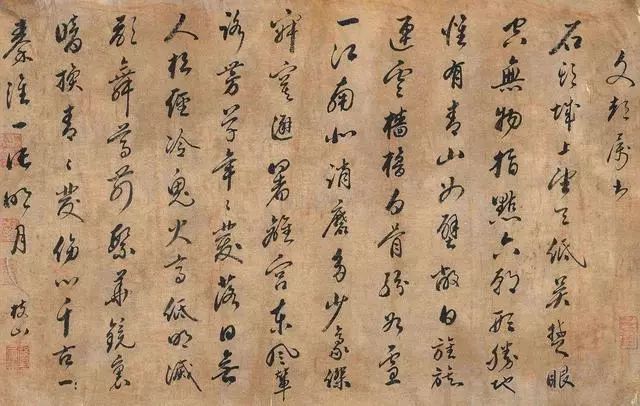 文 属書
石頭城上望天低吴楚眼
空無物指點六朝形勝地
惟有青山如壁蔽日旌旗
連雲檣櫓白骨紛如雪
一江南北消磨多少豪傑
寂寞避暑離宫東風輦
路芳草年々發落日無
人松徑冷鬼火高低明滅
歌舞尊前繁華鏡裏
暗換青々髮傷心千古一
秦淮一片明月
枝山